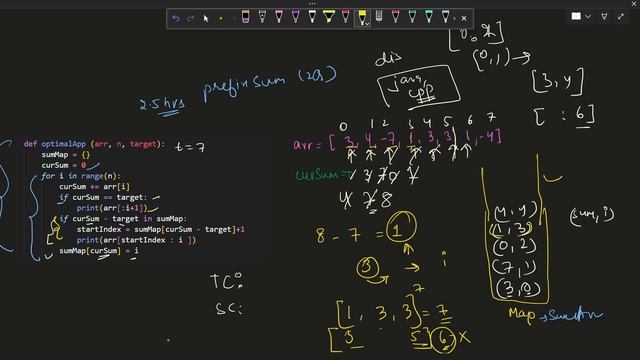 [0, 2]
(0,1) →
dis
java,
cpp
[3, 4]
[ : 6]
prefix Sum (2Q)
2.5 hrs
0 1 2 3 4 5 6 7
def optimalApp (arr, n, target):
t = 7
arr = [ 3, 4, -7, 1, 3, 3, 1, -4]
sumMap = {}
curSum = 0
curSum =
for i in range(n):
curSum += arr[i]
if curSum == target:
print(arr[:i+1])
if curSum - target in sumMap:
startIndex = sumMap[curSum - target]+1
print(arr[startIndex : i ])
sumMap[curSum] = i
4 7 8
8 - 7 = 1
3 → i
(4, 4)
(1, 3)
(0, 2)
(7, 1)
(3, 0)
(sum, i)
TC:
SC:
[1, 3, 3] = 7
[3 5] 6 x
Map →